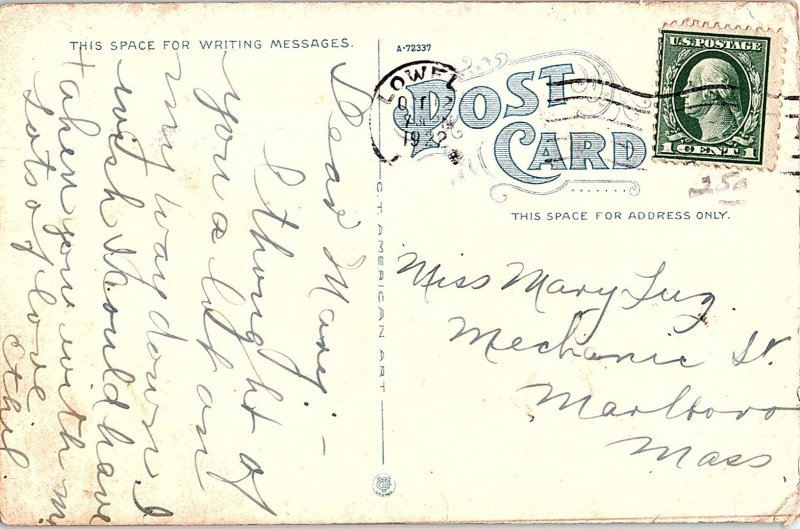 THIS SPACE FOR WRITING MESSAGES.
A-72337
POST
CARD
THIS SPACE FOR ADDRESS ONLY.
U.S. POSTAGE
1 CENT 1
LOWELL
1922
C.T. AMERICAN ART
25¢
Dear Mary: –
I thought of
you a lot on
my way down. I
wish I could have
taken you with me
Lots of love
Ethel
Miss Mary
Mechanic St.
Marlboro
Mass